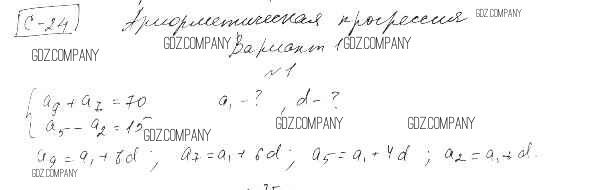 С-24 Арифметическая прогрессия GDZ.COMPANY
GDZ.COMPANY GDZ.COMPANY Вариант 1 GDZ.COMPANY
№1
{ a₉ + a₇ = 70 a₁ - ? , d - ?
a₅ - a₂ = 15 GDZ.COMPANY GDZ.COMPANY GDZ.COMPANY
a₉ = a₁ + 8d ; a₇ = a₁ + 6d ; a₅ = a₁ + 4d ; a₂ = a₁ + d.
GDZ.COMPANY